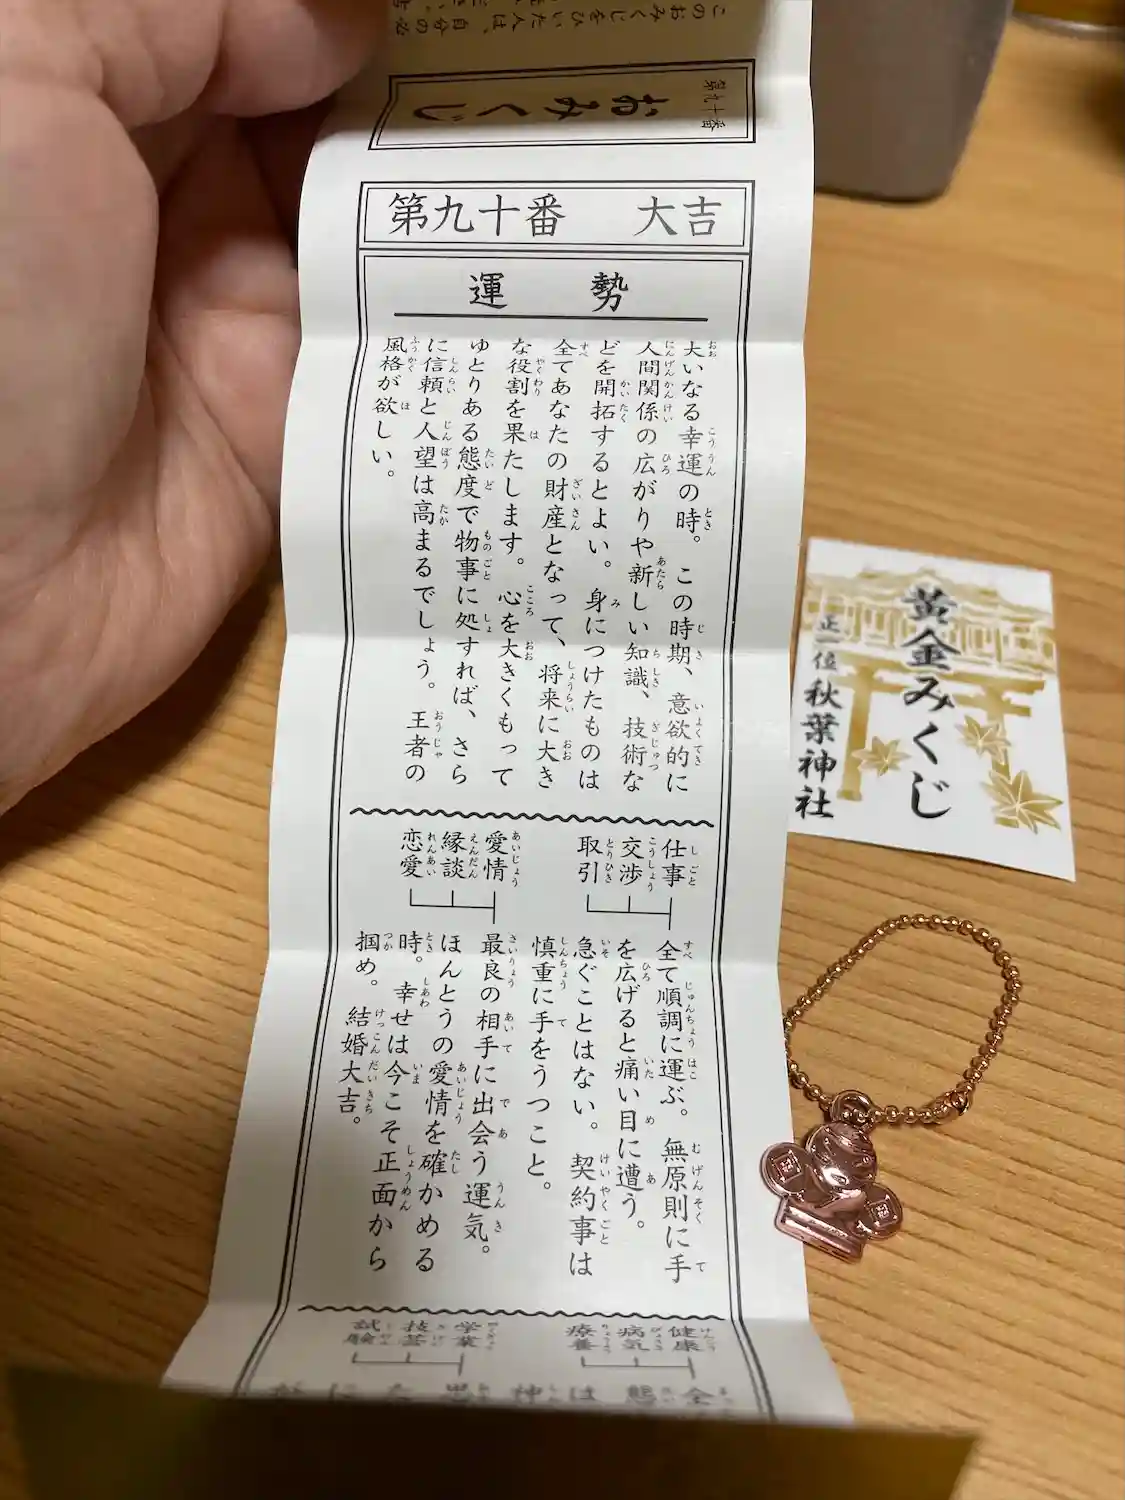 このおみくじをひいた人は、自分の必
第九十番
おみくじ
第九十番 大吉
運勢
大いなる幸運の時。この時期、意欲的に
人間関係の広がりや新しい知識、技術な
どを開拓するとよい。身につけたものは
全てあなたの財産となって、将来に大き
な役割を果たします。心を大きくもって
ゆとりある態度で物事に処すれば、さら
に信頼と人望は高まるでしょう。王者の
風格が欲しい。
仕事
交渉
取引
全て順調に運ぶ。無原則に手
を広げると痛い目に遭う。
急ぐことはない。契約事は
慎重に手をうつこと。
愛情
縁談
恋愛
最良の相手に出会う運気。
ほんとうの愛情を確かめる
時。幸せは今こそ正面から
掴め。結婚大吉。
健康
病気
療養
学業
技芸
試験
黄金みくじ
正一位秋葉神社